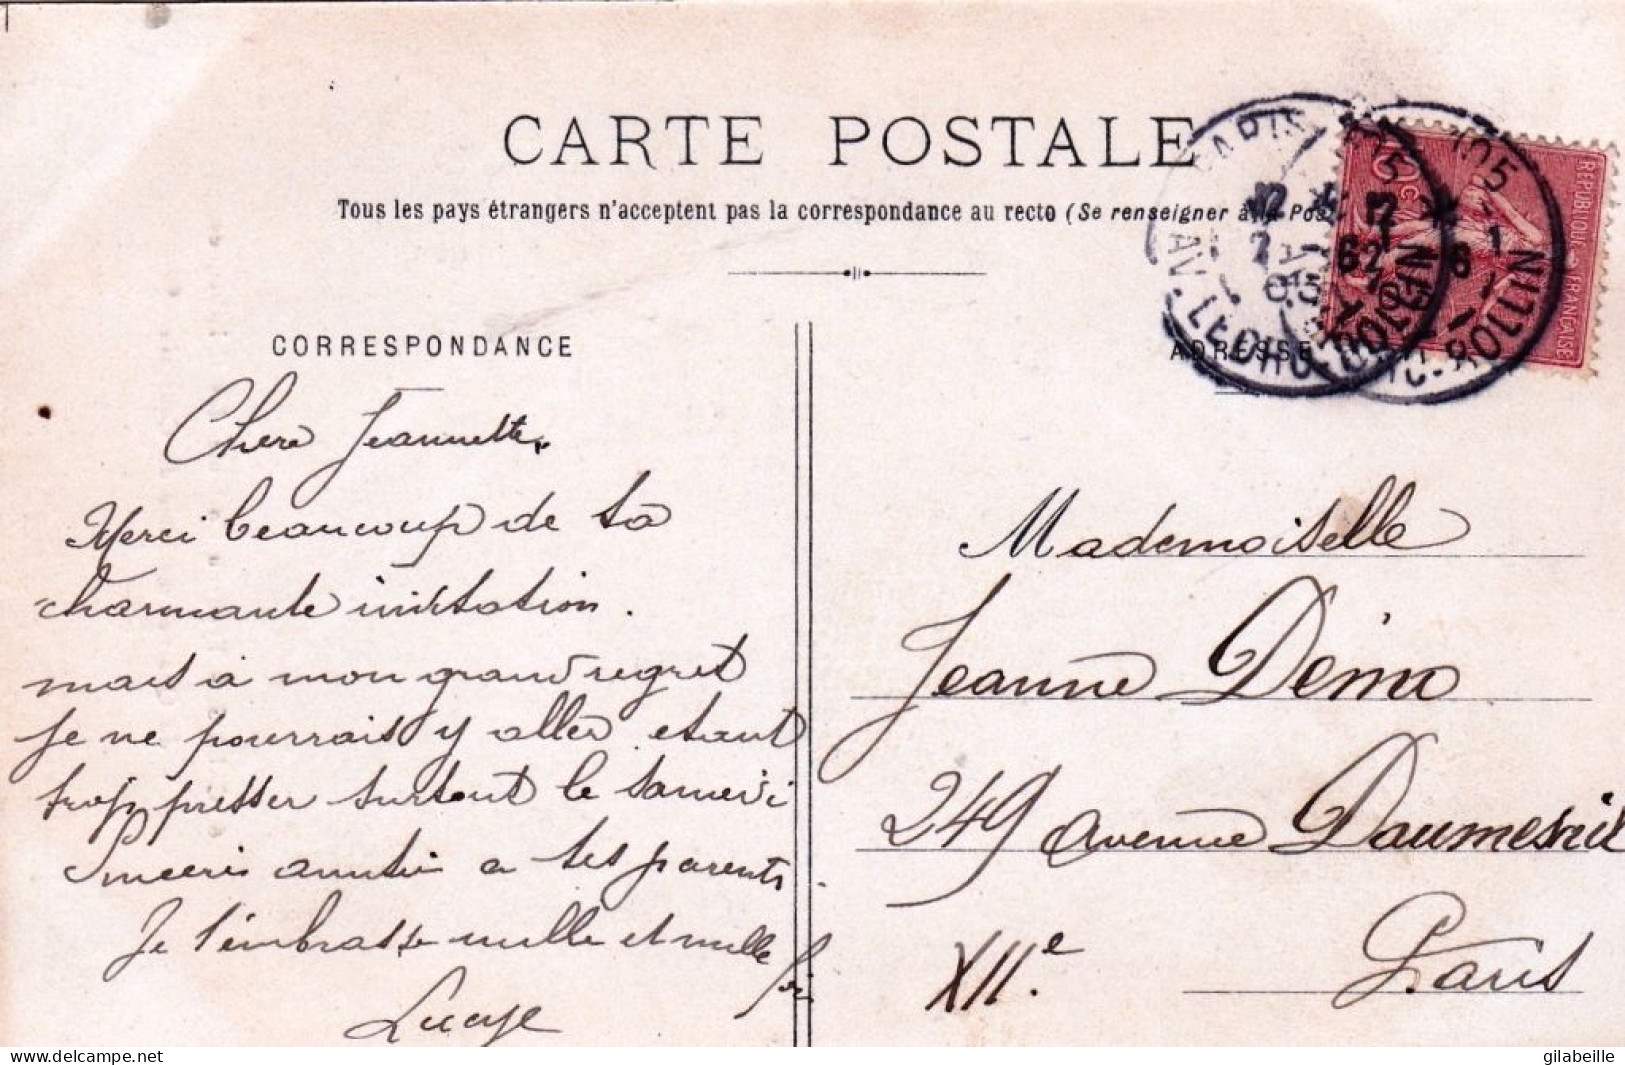 CARTE POSTALE
Tous les pays étrangers n'acceptent pas la correspondance au recto (Se renseigner à la Pos
CORRESPONDANCE
ADRESSE
REPUBLIQUE FRANÇAISE
10 c
PARIS
AV. LEDRU-ROLLIN
105
Chere Jeannette
Merci beaucoup de ta
charmante invitation.
mais a mon grand regret
je ne pourrais y aller etant
trop presser surtout le samedi
Sinceris amitié a tes parents
Je t'embrasse mille et mille
fois
Mademoiselle
Jeanne
249 avenue Daumesnil
XIIe.
Paris
delcampe.net
gilabeille